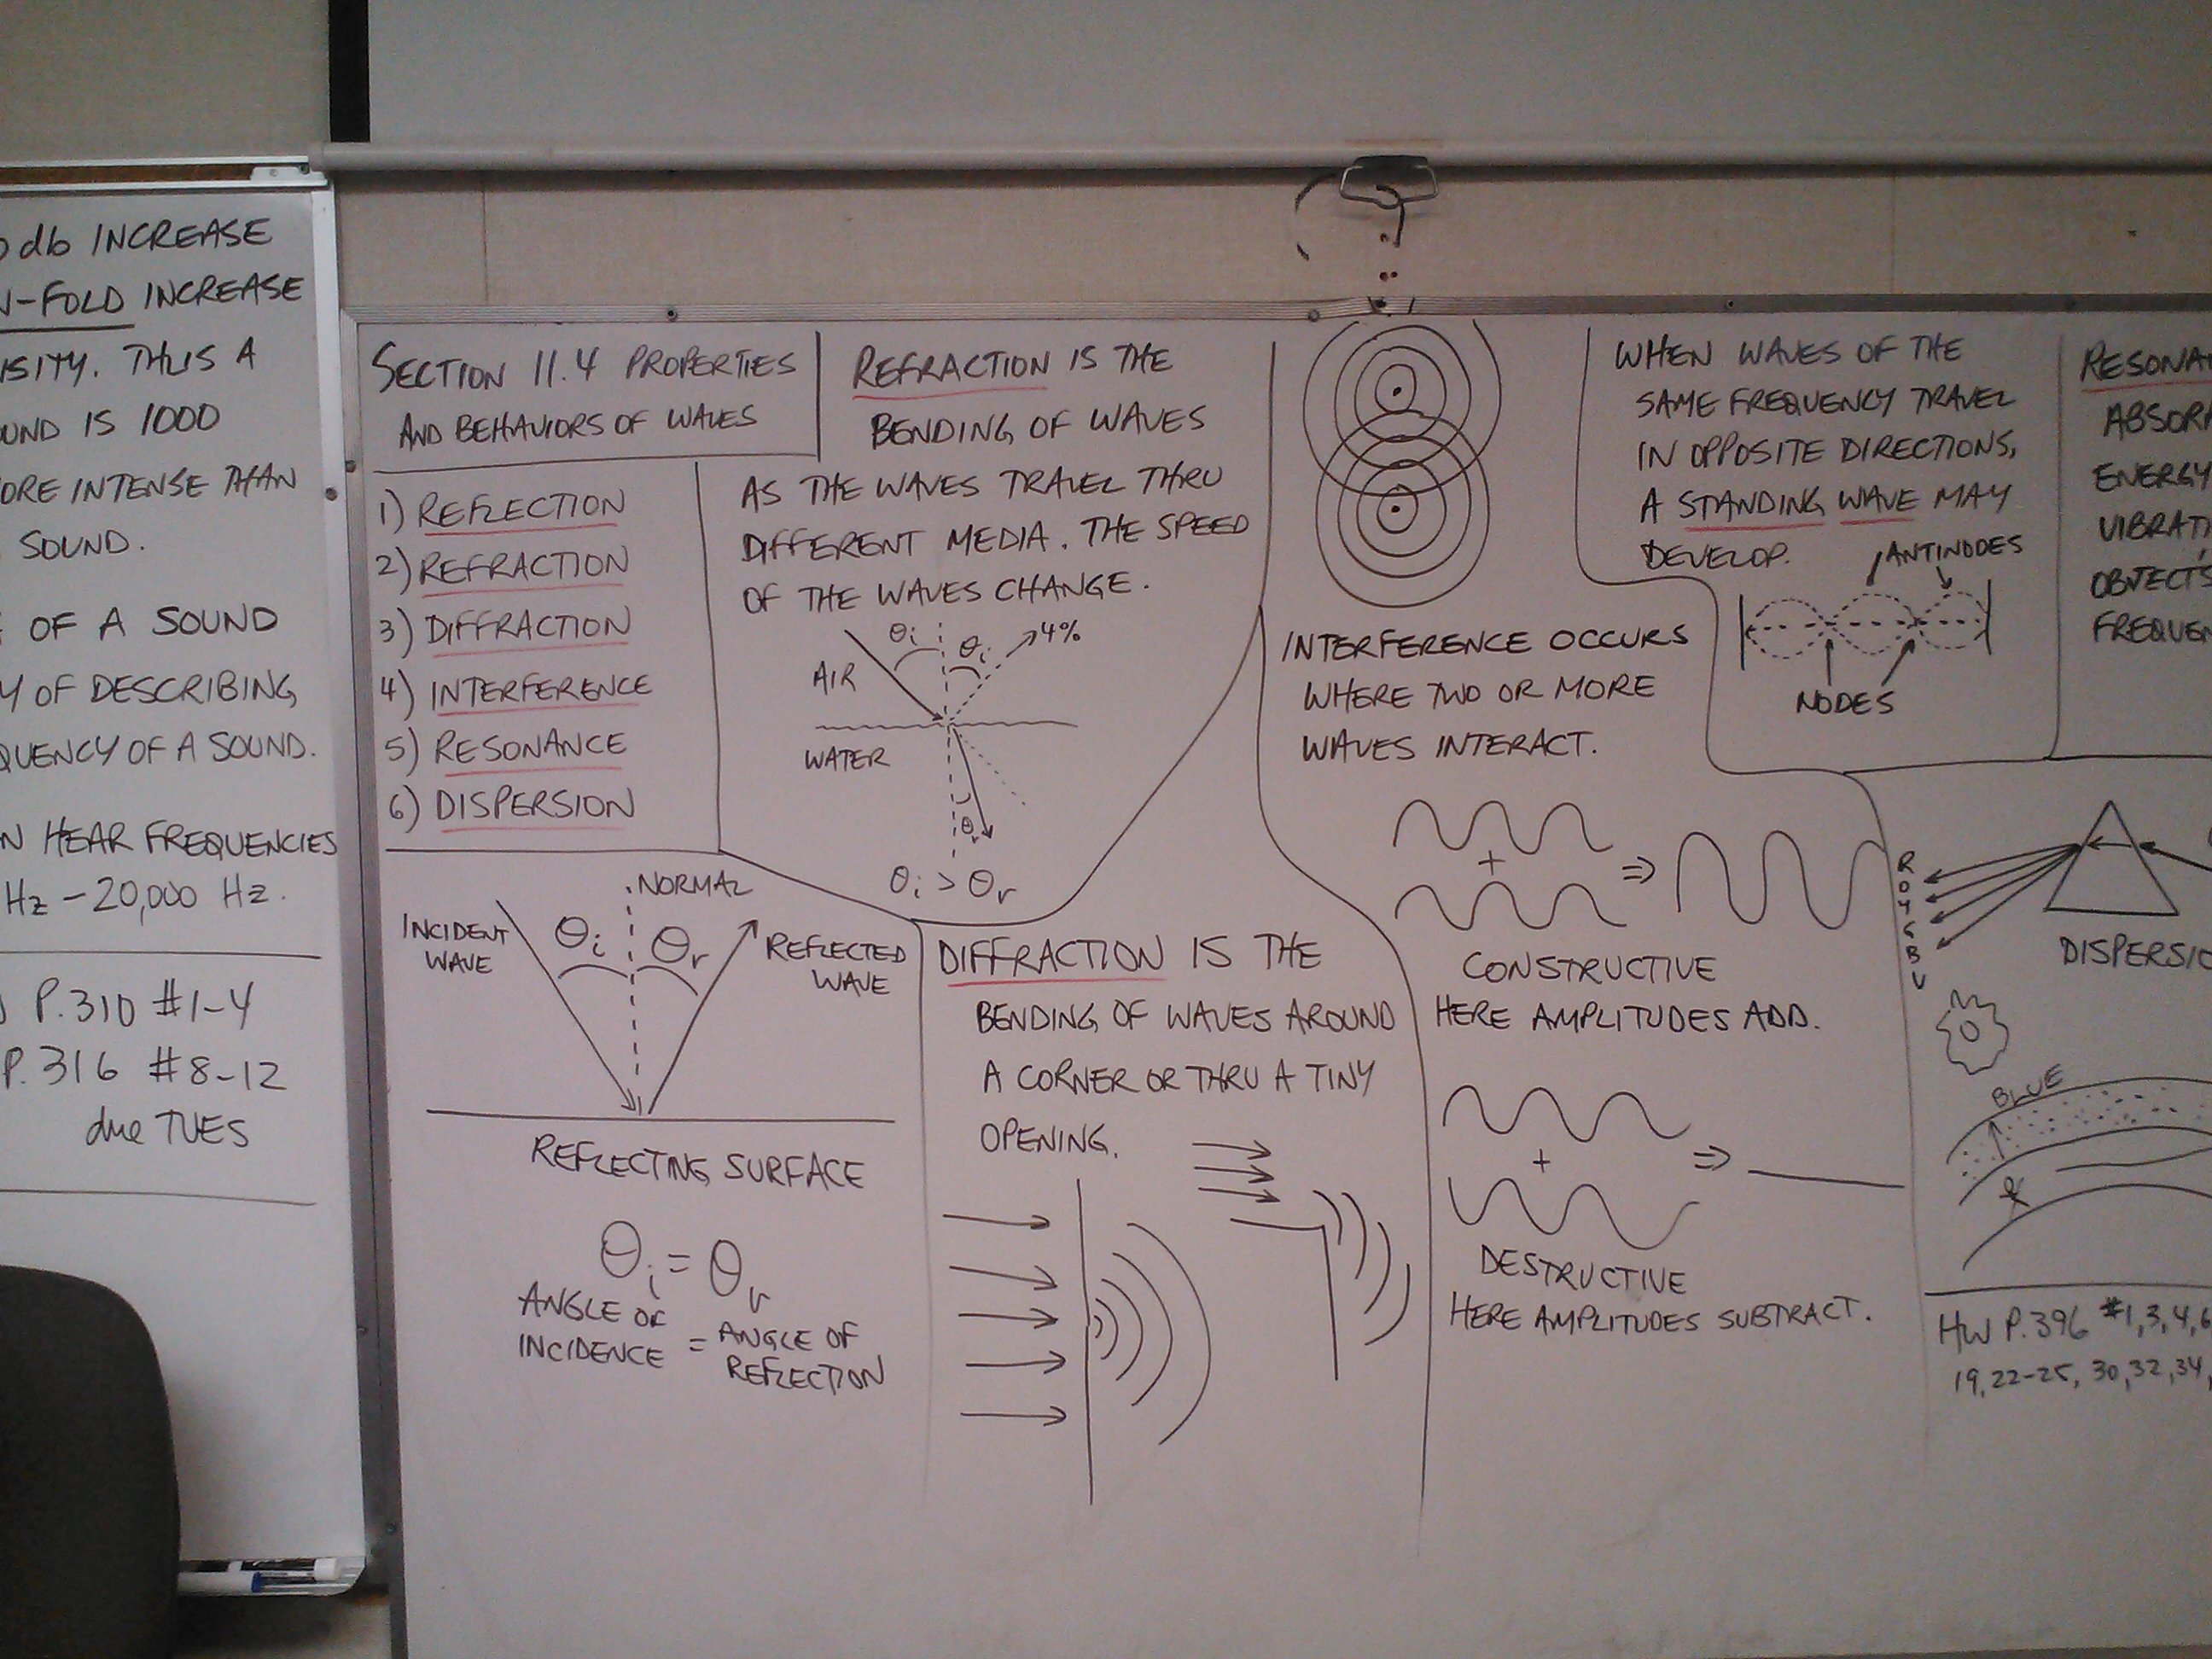 db INCREASE
N-FOLD INCREASE
SITY. THUS A
OUND IS 1000
ORE INTENSE THAN
SOUND.
OF A SOUND
Y OF DESCRIBING
QUENCY OF A SOUND.
N HEAR FREQUENCIES
Hz - 20,000 Hz.
P. 310 #1-4
P. 316 #8-12
due TUES
SECTION 11.4 PROPERTIES
AND BEHAVIORS OF WAVES
1) REFLECTION
2) REFRACTION
3) DIFFRACTION
4) INTERFERENCE
5) RESONANCE
6) DISPERSION
REFRACTION IS THE
BENDING OF WAVES
AS THE WAVES TRAVEL THRU
DIFFERENT MEDIA. THE SPEED
OF THE WAVES CHANGE.
θi θi 4%
AIR
WATER
θr
θi > θr
NORMAL
INCIDENT WAVE
θi θr
REFLECTED WAVE
REFLECTING SURFACE
θi = θr
ANGLE OF INCIDENCE = ANGLE OF REFLECTION
DIFFRACTION IS THE
BENDING OF WAVES AROUND
A CORNER OR THRU A TINY
OPENING.
INTERFERENCE OCCURS
WHERE TWO OR MORE
WAVES INTERACT.
+ ⇒
CONSTRUCTIVE
HERE AMPLITUDES ADD.
+ ⇒
DESTRUCTIVE
HERE AMPLITUDES SUBTRACT.
WHEN WAVES OF THE
SAME FREQUENCY TRAVEL
IN OPPOSITE DIRECTIONS,
A STANDING WAVE MAY
DEVELOP.
ANTINODES
NODES
RESONA
ABSOR
ENERGY
VIBRATI
OBJECT'S
FREQUEN
R
O
Y
G
B
V
DISPERSIO
BLUE
HW P. 396 #1,3,4,6
19,22-25, 30,32,34,